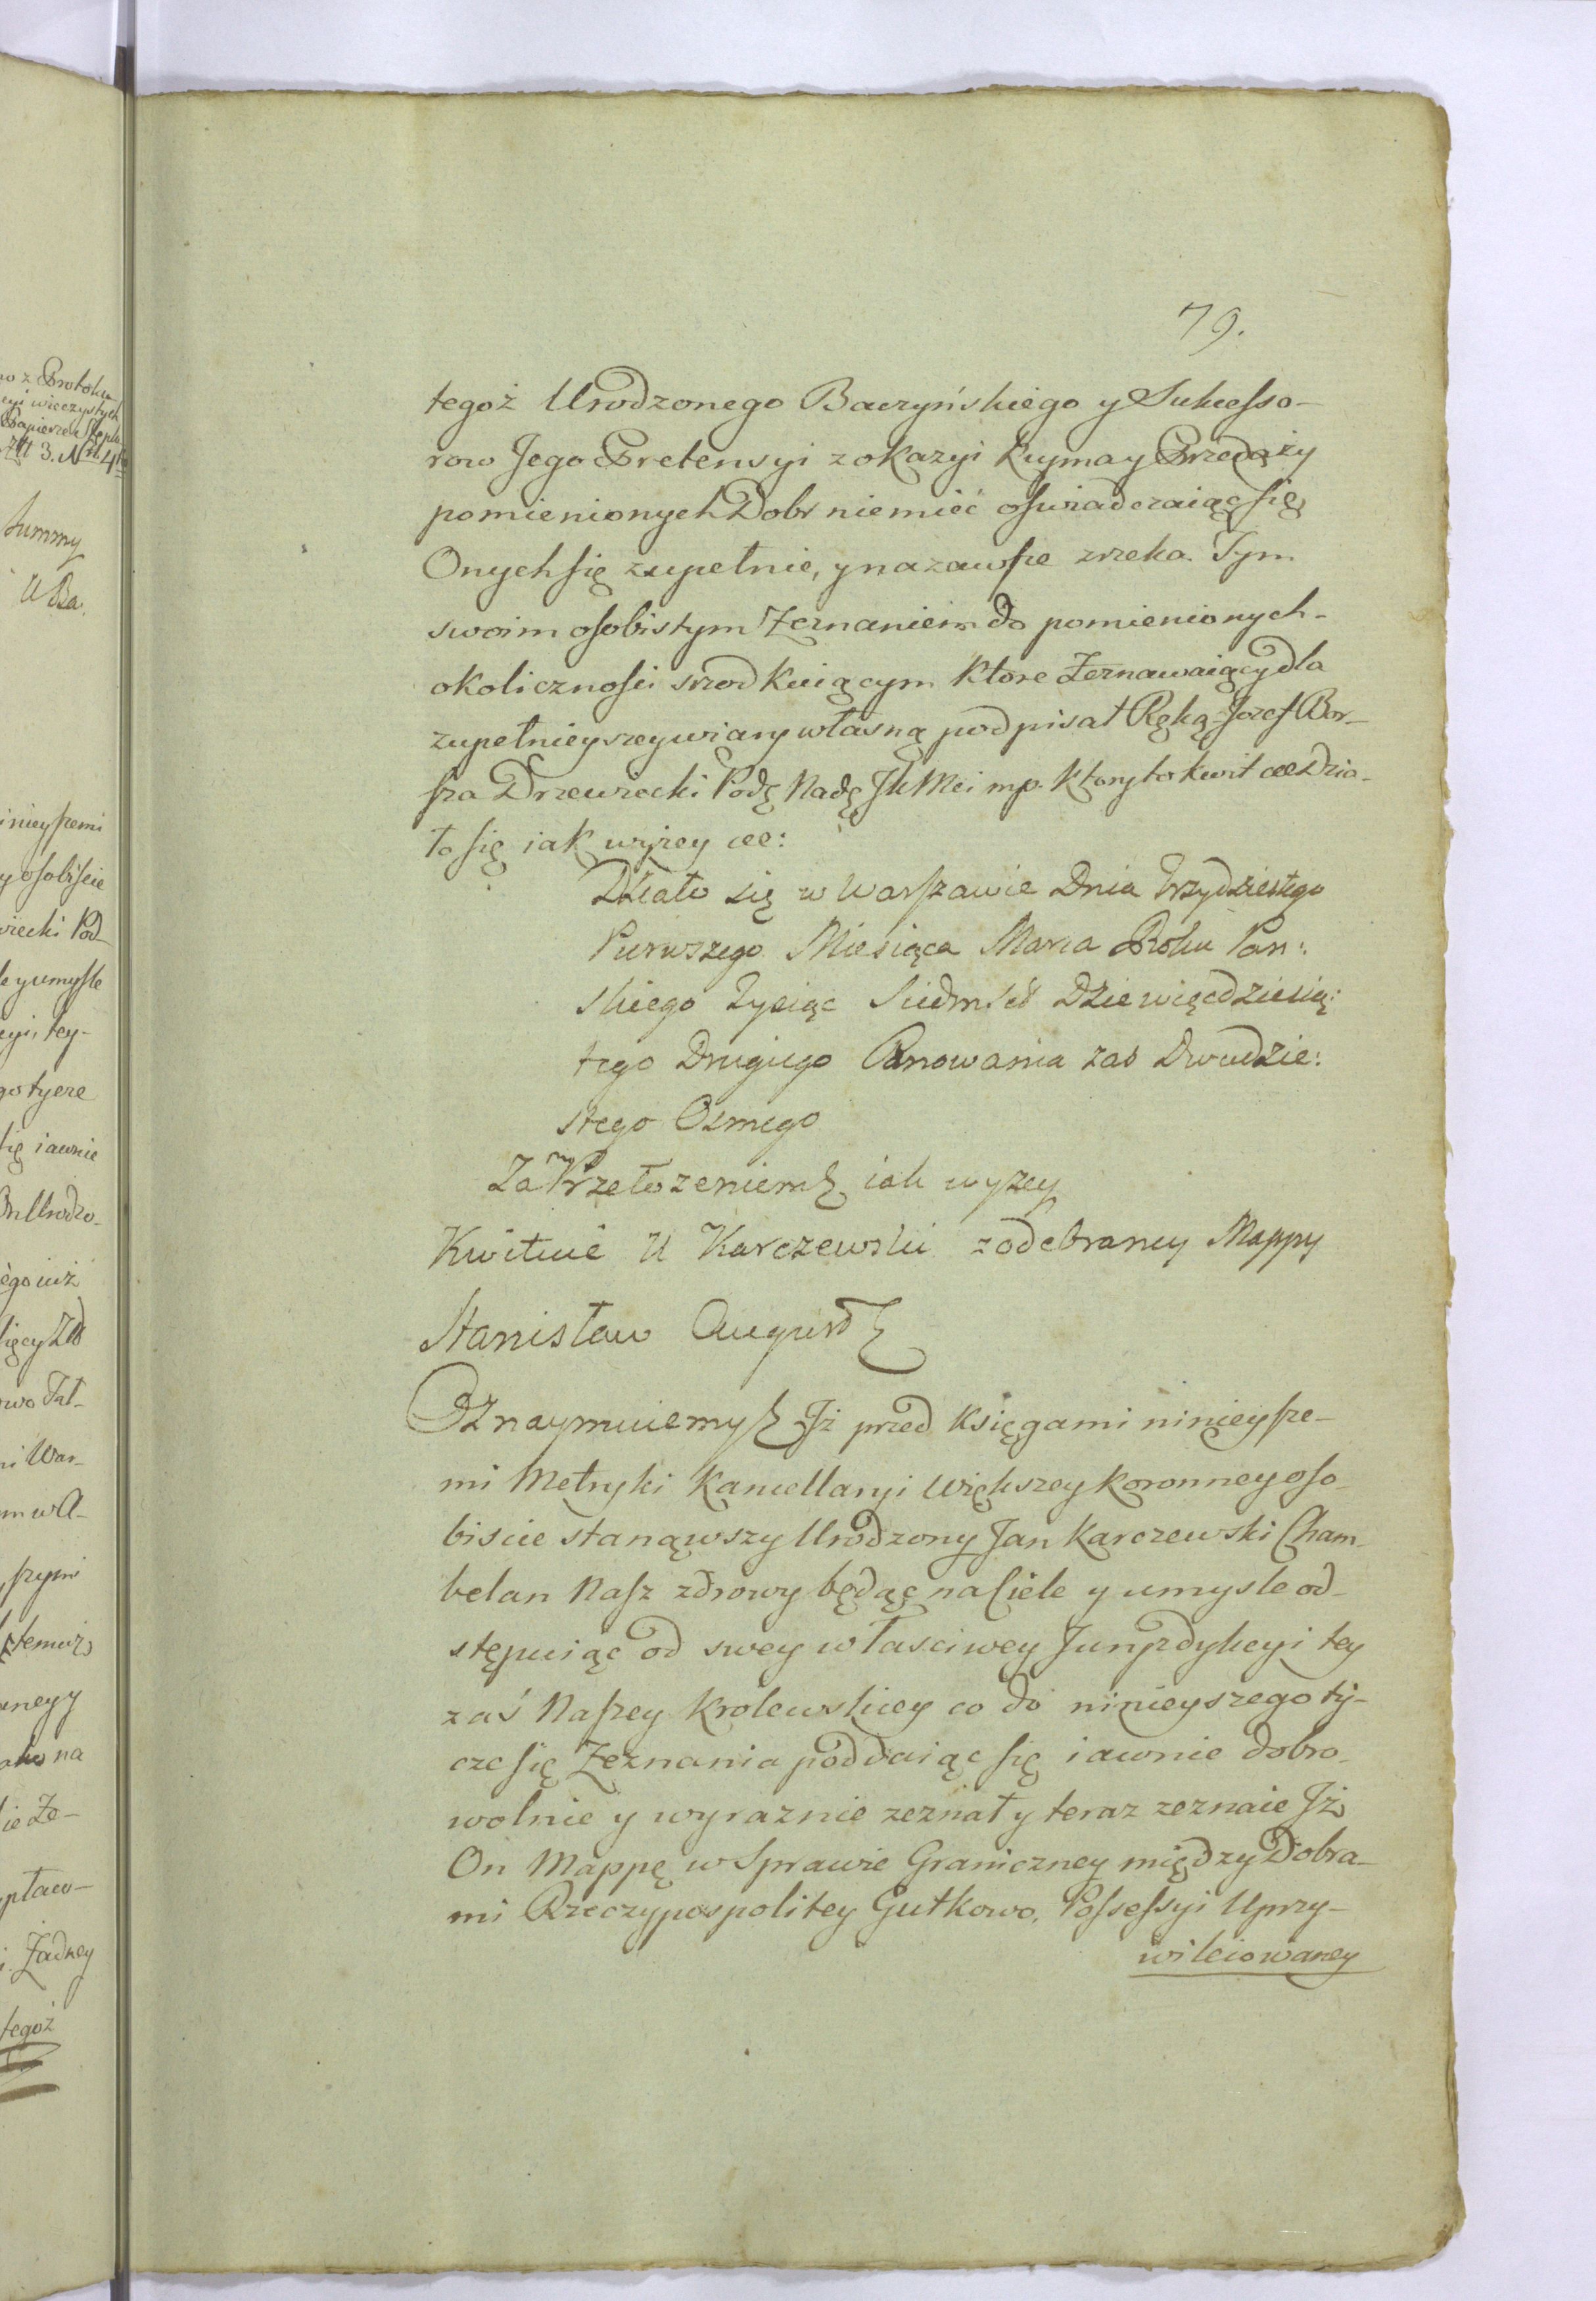 79.
tegoż Urodzonego Baczyńskiego y Sukcesso-
row Jego Pretensyi z okazyi kupna y Przedaży
pomienionych Dobr niemieć oswiadczaiąc się
Onych się zupełnie, y na zawsze zrzeka. Tym
swoim osobistym Zeznaniem do pomienionych-
okoliczności srzodkuiącym ktore Zeznawaiący dla
zupełnieyszey wiary własną podpisał Ręką Jozef Bor-
sza Drzewiecki Podę Nadę JKMci mp. Ktory to kwit &c Dzia-
ło się iak wyżey &c:
Działo się w Warszawie Dnia Trzydziestego
Pierwszego Miesiąca Marca Roku Pan:
skiego Tysiąc Siedmset Dziewięcdziesią:
tego Drugiego Panowania zas Dwudzie:
stego Osmego
Za Przełozeniem iak wyzey
Kwituie U Karczewski z odebraney Mappy
Stanisław August
Oznaymuiemy Iż przed Księgami ninieysze-
mi Metryki Kancellaryi Większey Koronney oso-
biscie stanąwszy Urodzony Jan Karczewski Cham-
belan Nasz zdrowy będąc na Ciele y umysle od-
stępuiąc od swey własciwey Juryzdykcyi tey
zaś Naszey Krolewskiey co do ninieyszego ty-
cze się Zeznania poddaiąc się iawnie dobro-
wolnie y wyraznie zeznał y teraz zeznaie Iż
On Mappę w Sprawie Graniczney między Dobra-
mi Rzeczypospolitey Gutkowo, Possessyi Uprzy-
wileiowaney